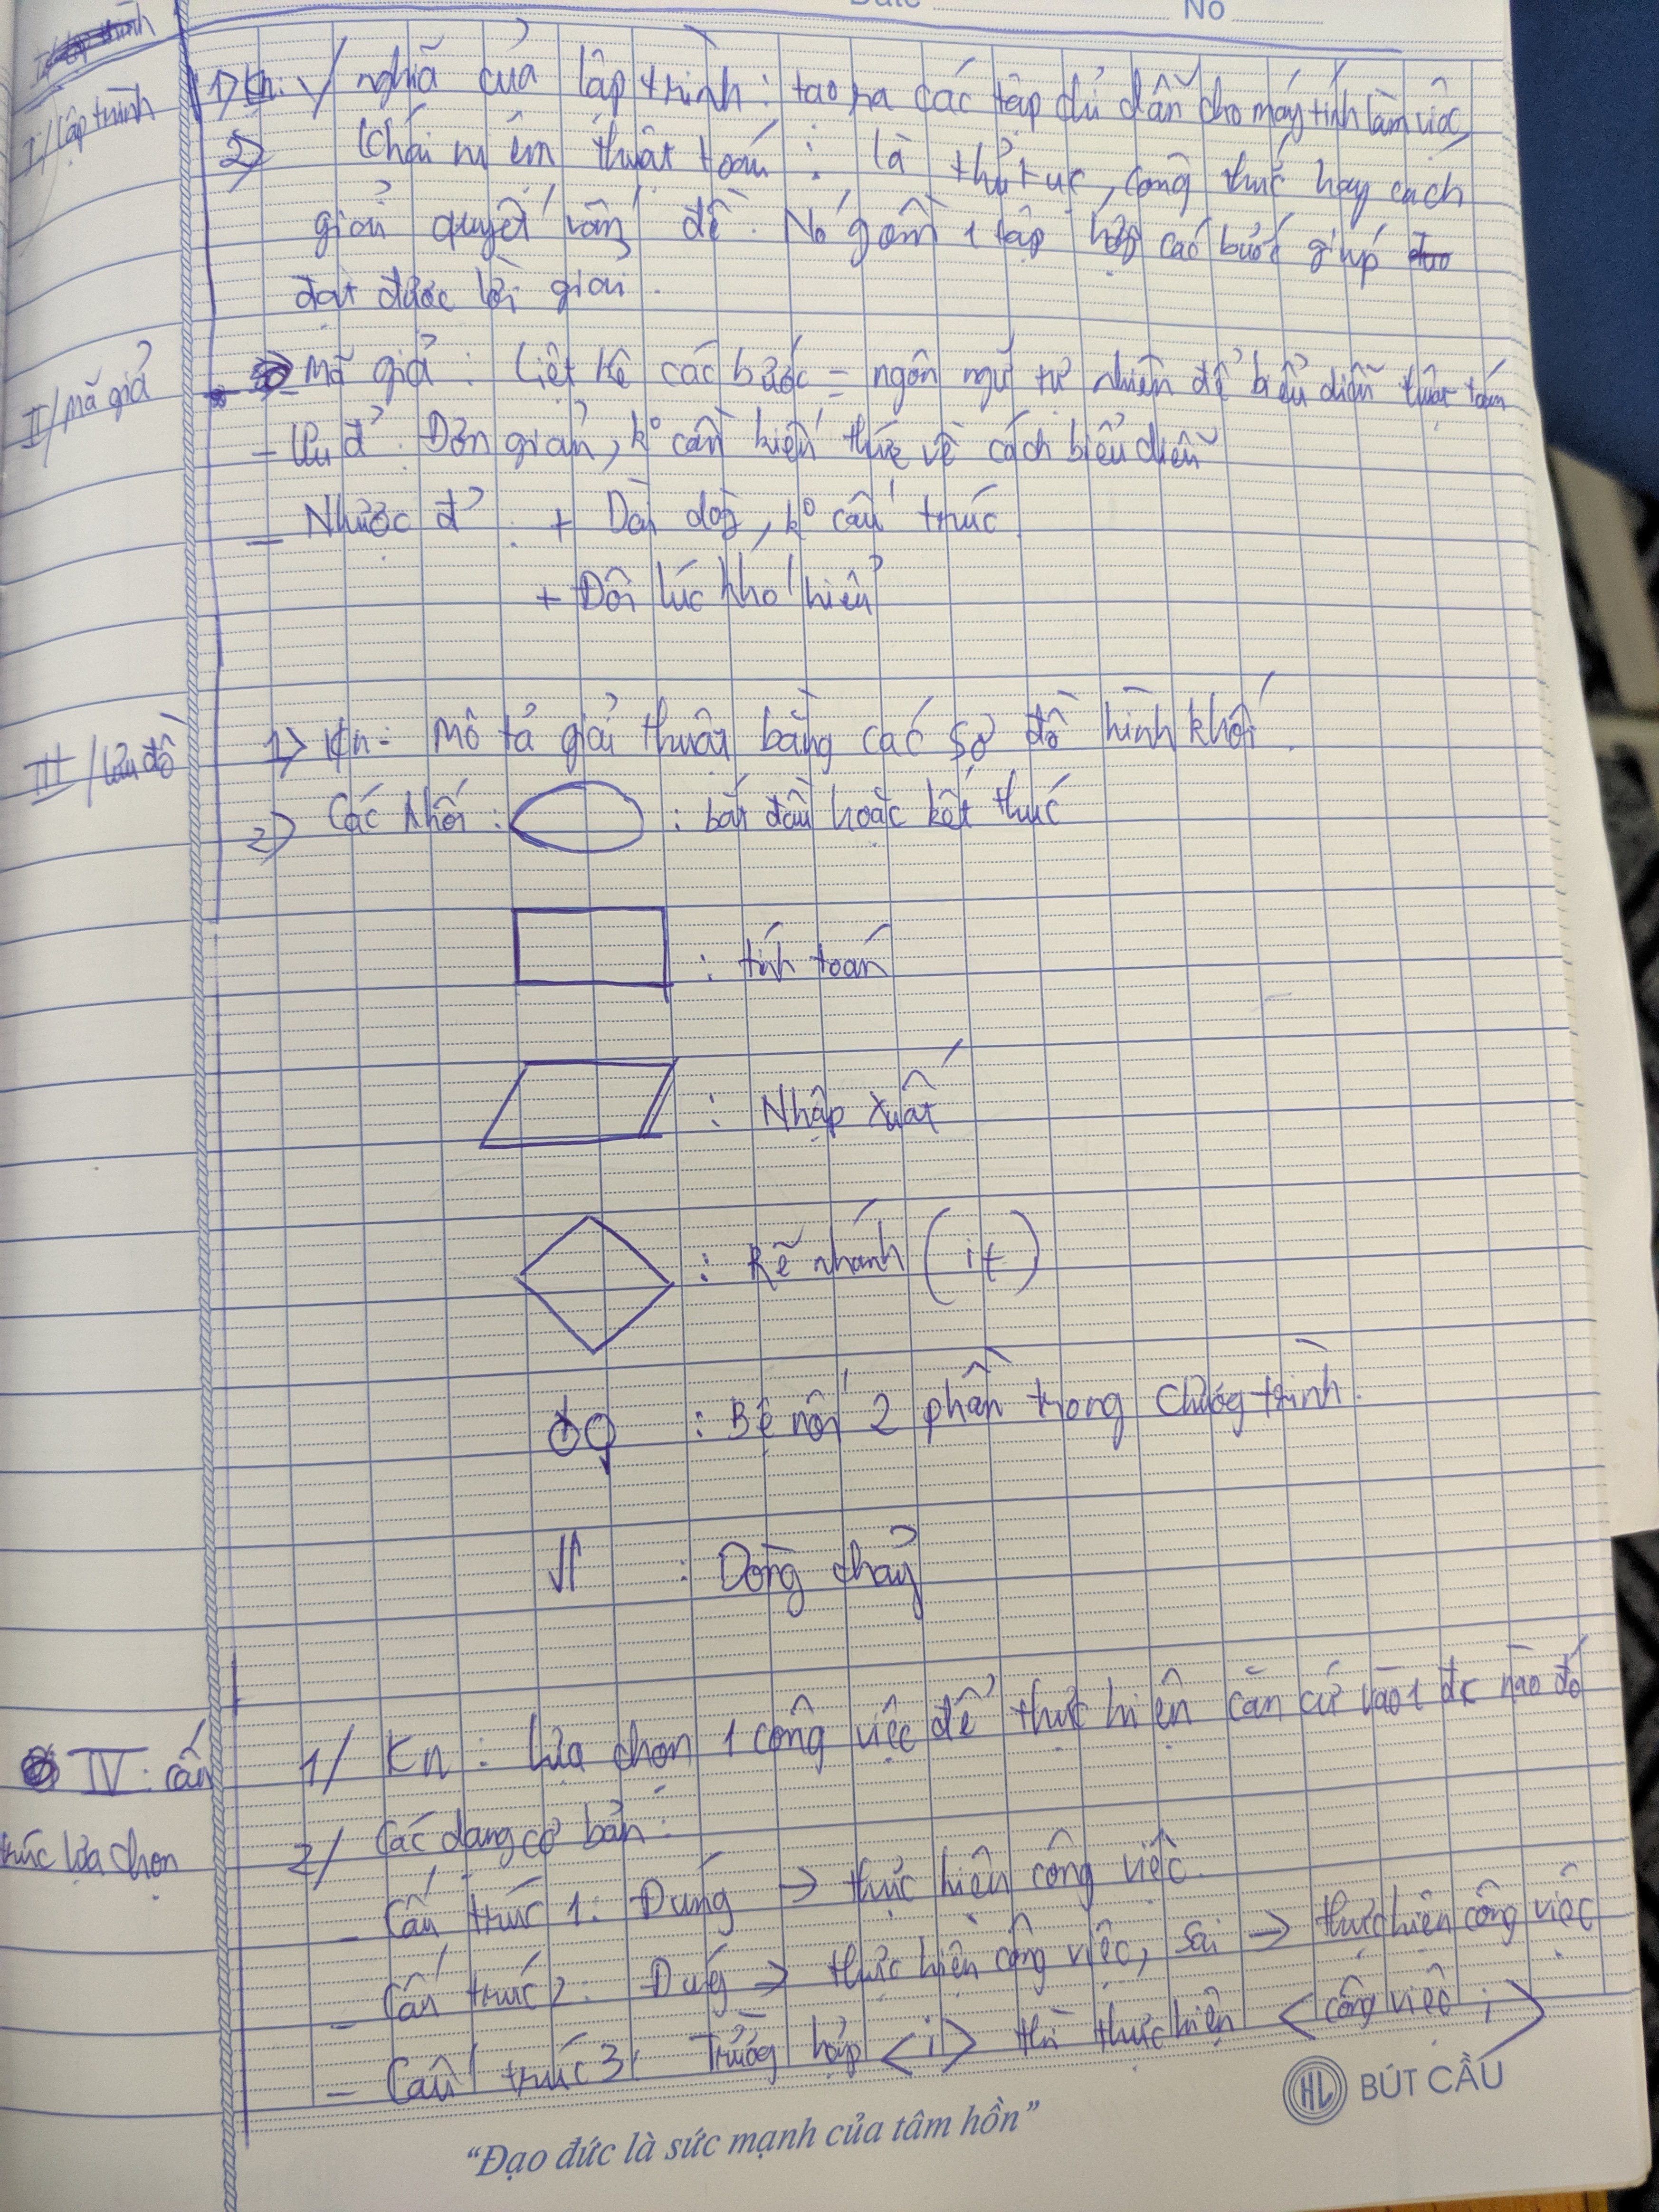 Date No
I/ Lập trình
1) Kn: Ý nghĩa của lập trình: tạo ra các tập chỉ dẫn cho máy tính làm việc
2) Khái niệm thuật toán: là thủ tục, công thức hay cách
giải quyết vấn đề. Nó gồm 1 tập hợp các bước giúp
đạt được lời giải.
II/ Mã giả
Mã giả: Liệt kê các bước = ngôn ngữ tự nhiên để biểu diễn thuật toán
- Ưu đ': Đơn giản, k° cần kiến thức về cách biểu diễn
- Nhược đ': + Dài dòng, k° cấu trúc
+ Đôi lúc khó hiểu
III/ Lưu đồ
1) Kn: Mô tả giải thuật bằng các sơ đồ hình khối.
2) Các khối: : bắt đầu hoặc kết thúc
: tính toán
: Nhập xuất
: Rẽ nhánh (if)
: Bệ nối 2 phần trong chương trình.
: Dòng chảy
IV: cấu
trúc lựa chọn
1/ Kn: Lựa chọn 1 công việc để thực hiện căn cứ vào 1 đk nào đó
2/ Các dạng cơ bản:
- Cấu trúc 1: Đúng → thực hiện công việc.
- Cấu trúc 2: Đúng → thực hiện công việc, sai → thực hiện công việc
- Cấu trúc 3: Trường hợp <i> thì thực hiện <công việc i>
HL BÚT CẦU
"Đạo đức là sức mạnh của tâm hồn"